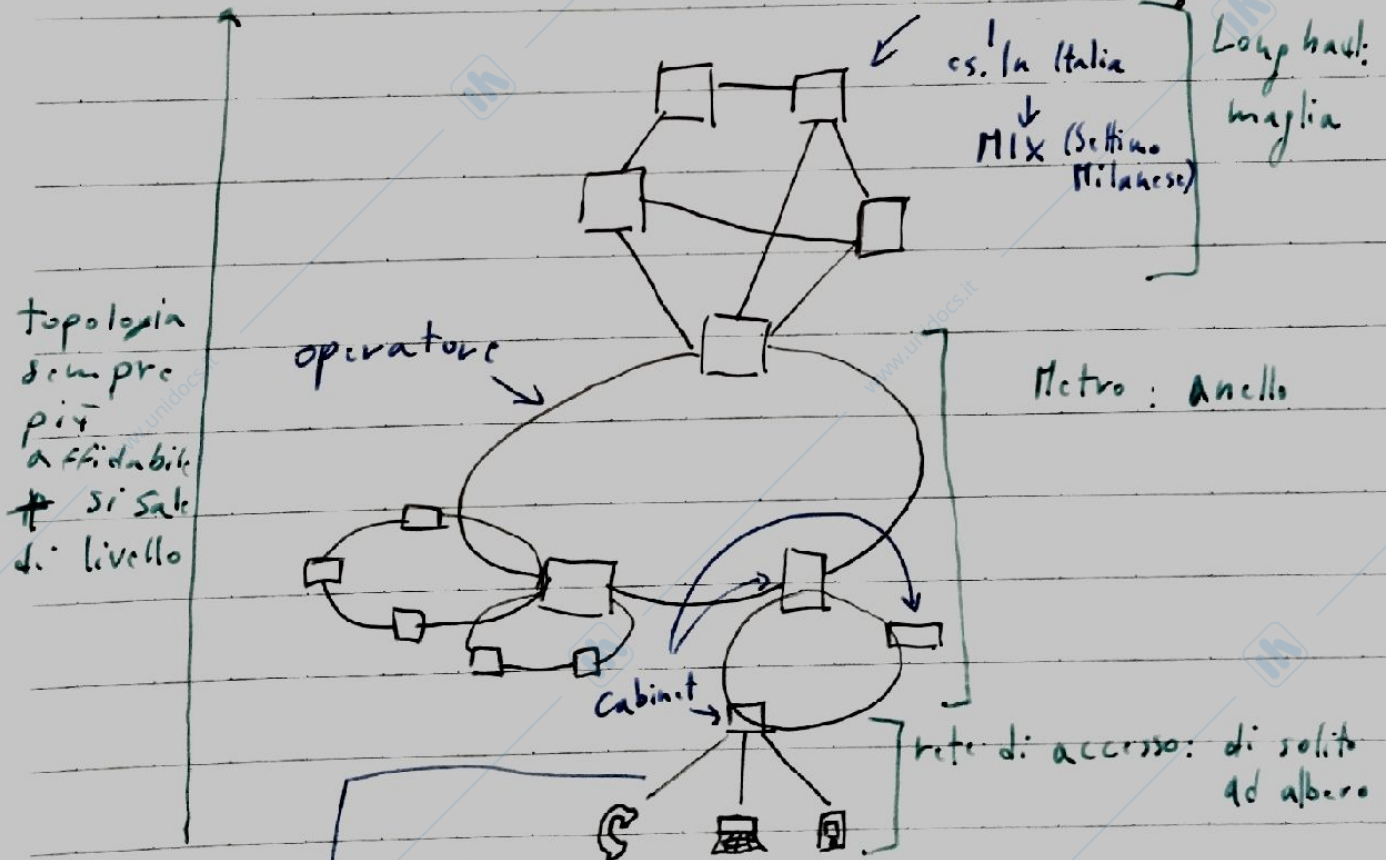 es. In Italia
MIX (Settimo
Milanese)
Long haul:
maglia
topologia
sempre
più
affidabile
si sale
di livello
operatore
Metro: anello
Cabinet
rete di accesso: di solito
ad albero
www.unidocs.it
www.unidocs.it